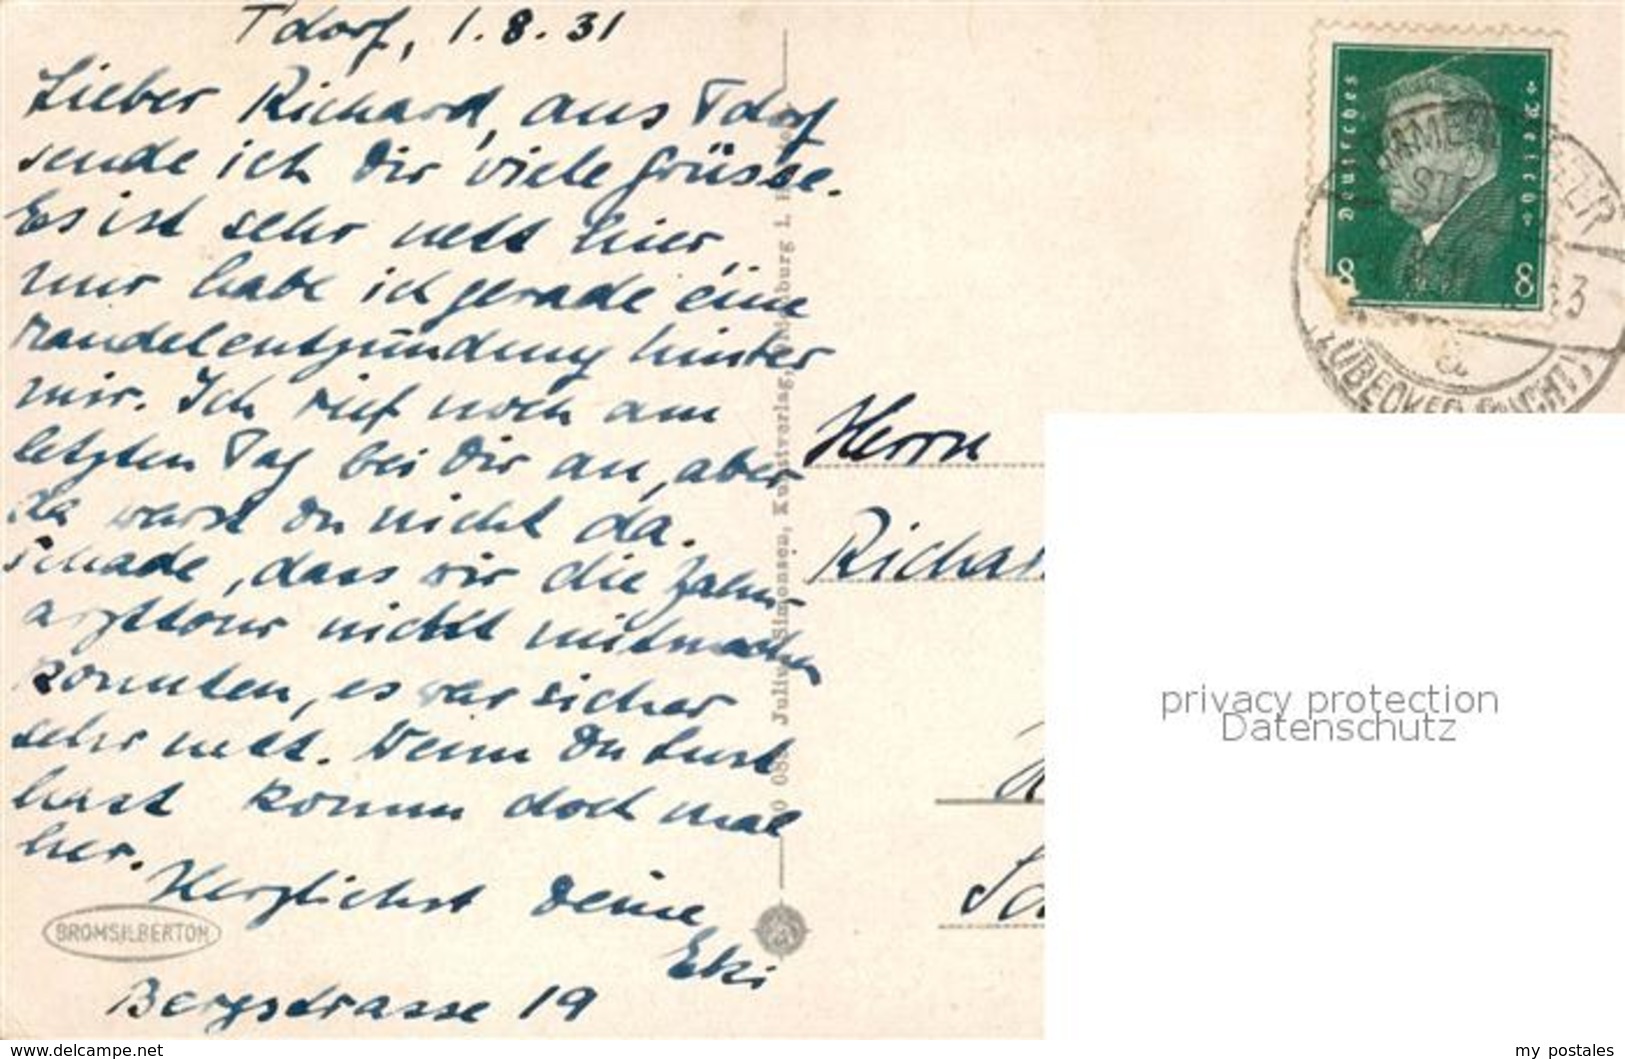 Tdorf, 1.8.31
Lieber Richard, aus Tdorf
sende ich Dir viele Grüsse.
Es ist sehr nett hier,
nur habe ich gerade eine
Mandelentzündung hinter
mir. Ich rief noch am
letzten Tag bei Dir an, aber
da warst Du nicht da.
Schade, dass wir die Zahn-
arzttour nicht mitmachen
konnten, es war sicher
sehr nett. Wenn Du Lust
hast komm doch mal
her.
Herzlichst Deine
Eki
Bergstrasse 19
BROMSILBERTON
Julius Simonsen, Kunstverlag, Oldenburg i. H.
Deutsches Reich
8 8
TIMMENDORFER
(LÜBECKER BUCHT)
a
Herrn
Richar
privacy protection
Datenschutz
www.delcampe.net
my postales